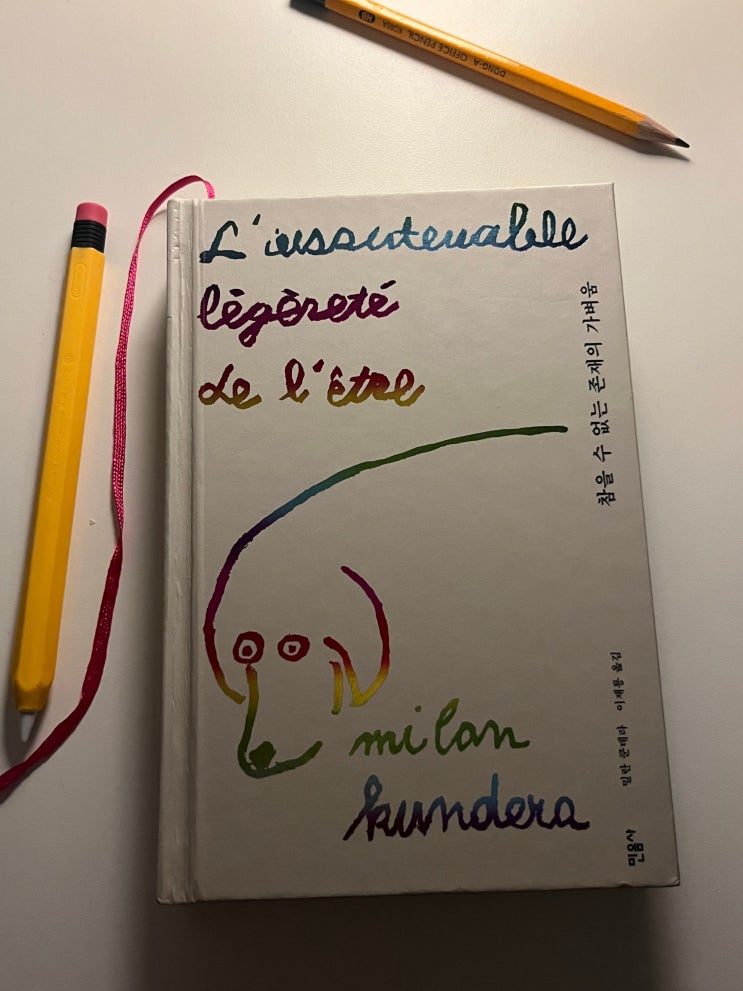 DONG-A. OFFICE PENCIL KOREA HB
L'insoutenable
légèreté
de l'être
참을 수 없는 존재의 가벼움
milan
kundera
밀란 쿤데라 이재룡 옮김
민음사